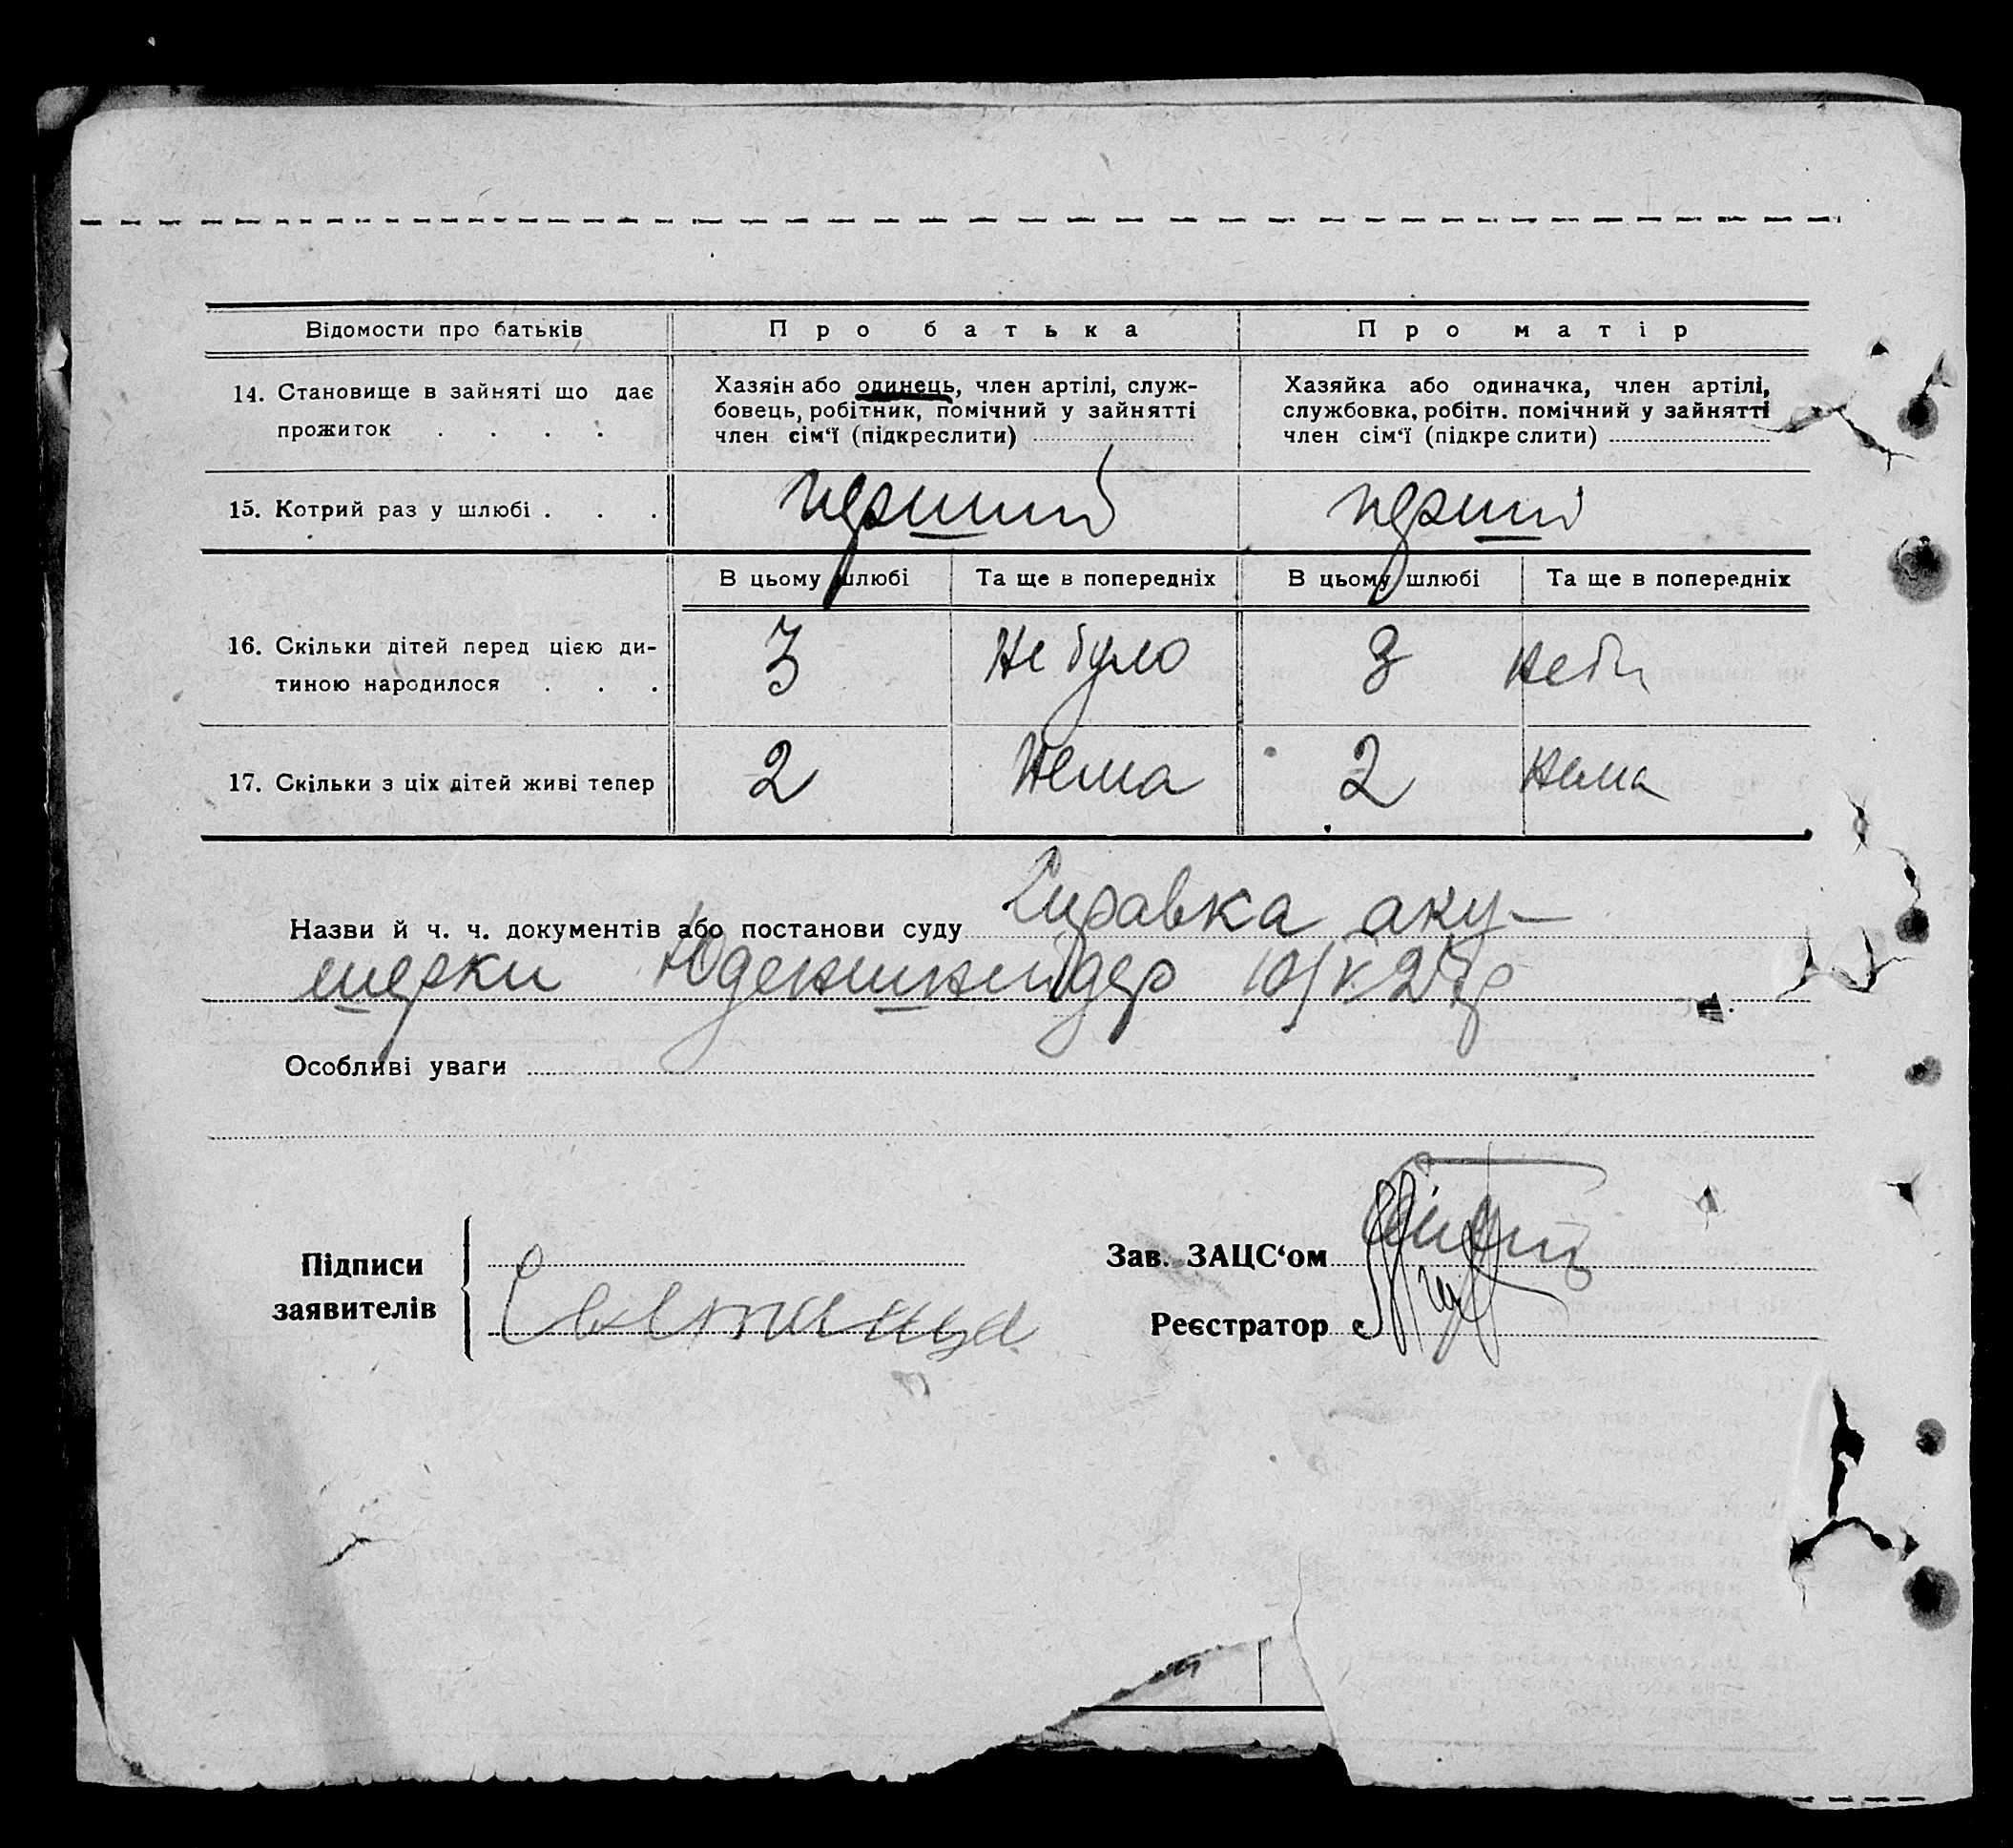 Відомости про батьків
Про батька
Про матір
14. Становище в зайняті що дає
прожиток . . . .
Хазяін або одинець, член артілі, служ-
бовець, робітник, помічний у зайнятті
член сім'ї (підкреслити)
Хазяйка або одиначка, член артілі,
службовка, робітн. помічний у зайнятті
член сім'ї (підкре слити)
15. Котрий раз у шлюбі . . .
перший
перший
В цьому шлюбі
Та ще в попередніх
В цьому шлюбі
Та ще в попередніх
16. Скільки дітей перед цією ди-
тиною народилося . . .
3
Не було
3
Не б
17. Скільки з ціх дітей живі тепер
2
Нема
2
Нема
Назви й ч. ч. документів або постанови суду Справка аку-
шерки Юденшнейдер 10/V 27р
Особливі уваги
Підписи
заявителів
Зав. ЗАЦС'ом
Реєстратор